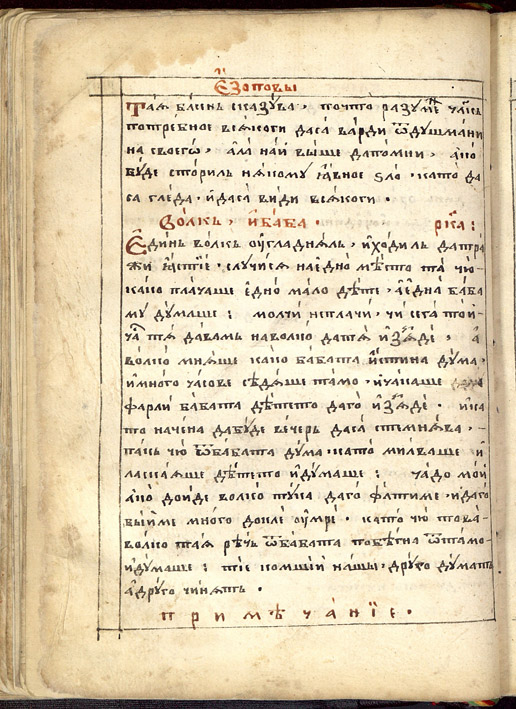 Е҆зоповы
Таѧ ба́снь сказꙋва, почто разꙋме́нъ чл҃къ
потребное всѧкоги даса варди ѿдꙋшмани
на своего̀, ала най выше дапомни, ако̀
бꙋде сторилъ нѧкомꙋ ꙗ҆вное ѕло, като̀ да
са глѣда, и҆даса види всѧкоги.
Волкъ, и҆баба. рк҃а:
Е҆динъ волкъ ѹ҆гладнѧлъ, и҆ходилъ датра
жи ꙗ҆стїе. слꙋчисѧ наедно̀ мѣсто та̀ чю̀
како̀ плачаше е҆дно̀ мало дѣте, а҆една̀ баба
мꙋ дꙋмаше: молчѝ неплачѝ, чи сега̀
тѧ давамъ наволко датѧ и҆зѧде, а
волко мнѧше како̀ бабата и҆стина дꙋма,
и҆много часове сѣдѧше тамо, и҆чакаше да
фарли бабата дѣтето даго̀ и҆зѧдѐ. и҆ка
то начена дабꙋде вечеръ даса стемнѧва,
пакъ чю̀ ѿбабата дꙋма. като̀ милваше и҆
ласкаѧше дѣтето и҆дꙋмаше: чадо мой
ако̀ дойде волко тꙋка даго̀ фатиме, и҆даго
выйме много докле ѹ҆мре. като̀ чю̀ това
волко таѧ рѣчь ѿбабата побѣгна ѿтамо
и҆дꙋмаше: тїе комшїи нашы, дрꙋго дꙋматъ
а҆дрꙋго чинѧтъ.
примѣчанїе.